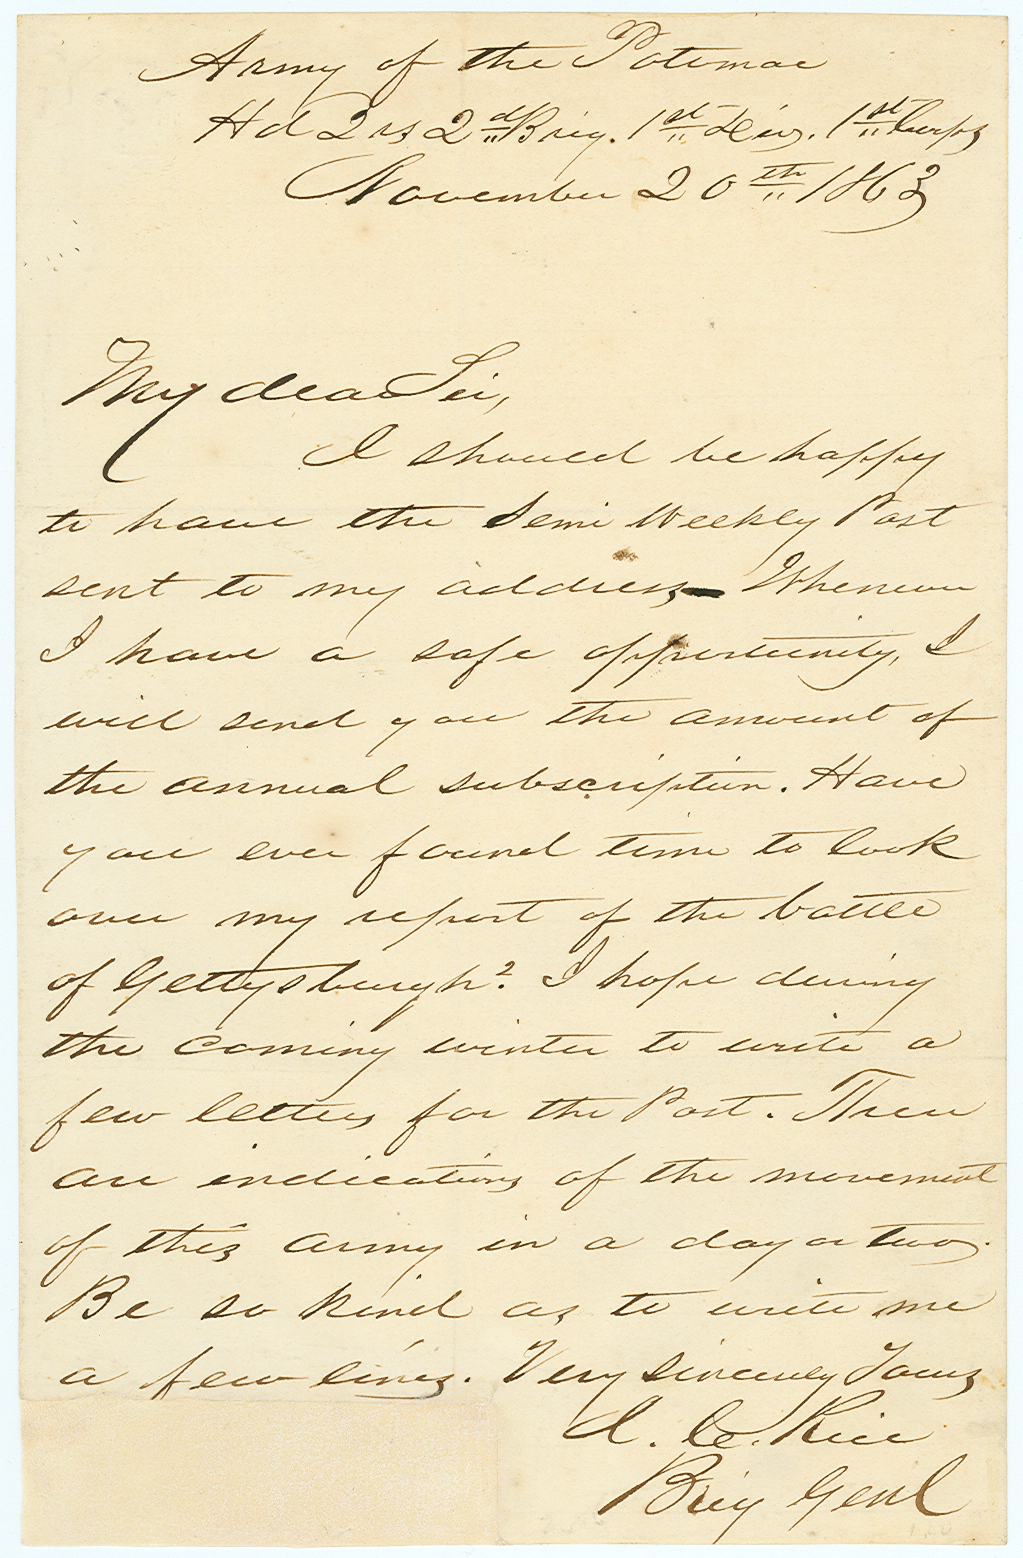 Army of the Potomac
Hd Qrs 2d Brig. 1st Div. 1st Corps
November 20th 1863
My dear Sir,
I should be happy
to have the Semi Weekly Post
sent to my address — Whenever
I have a safe opportunity, I
will send you the amount of
the annual subscription. Have
you ever found time to look
over my report of the battle
of Gettysburgh? I hope during
the coming winter to write a
few letters for the Post. There
are indications of the movement
of this army in a day or two.
Be so kind as to write me
a few lines. Very sincerely Yours
J. C. Rice
Brig Genl